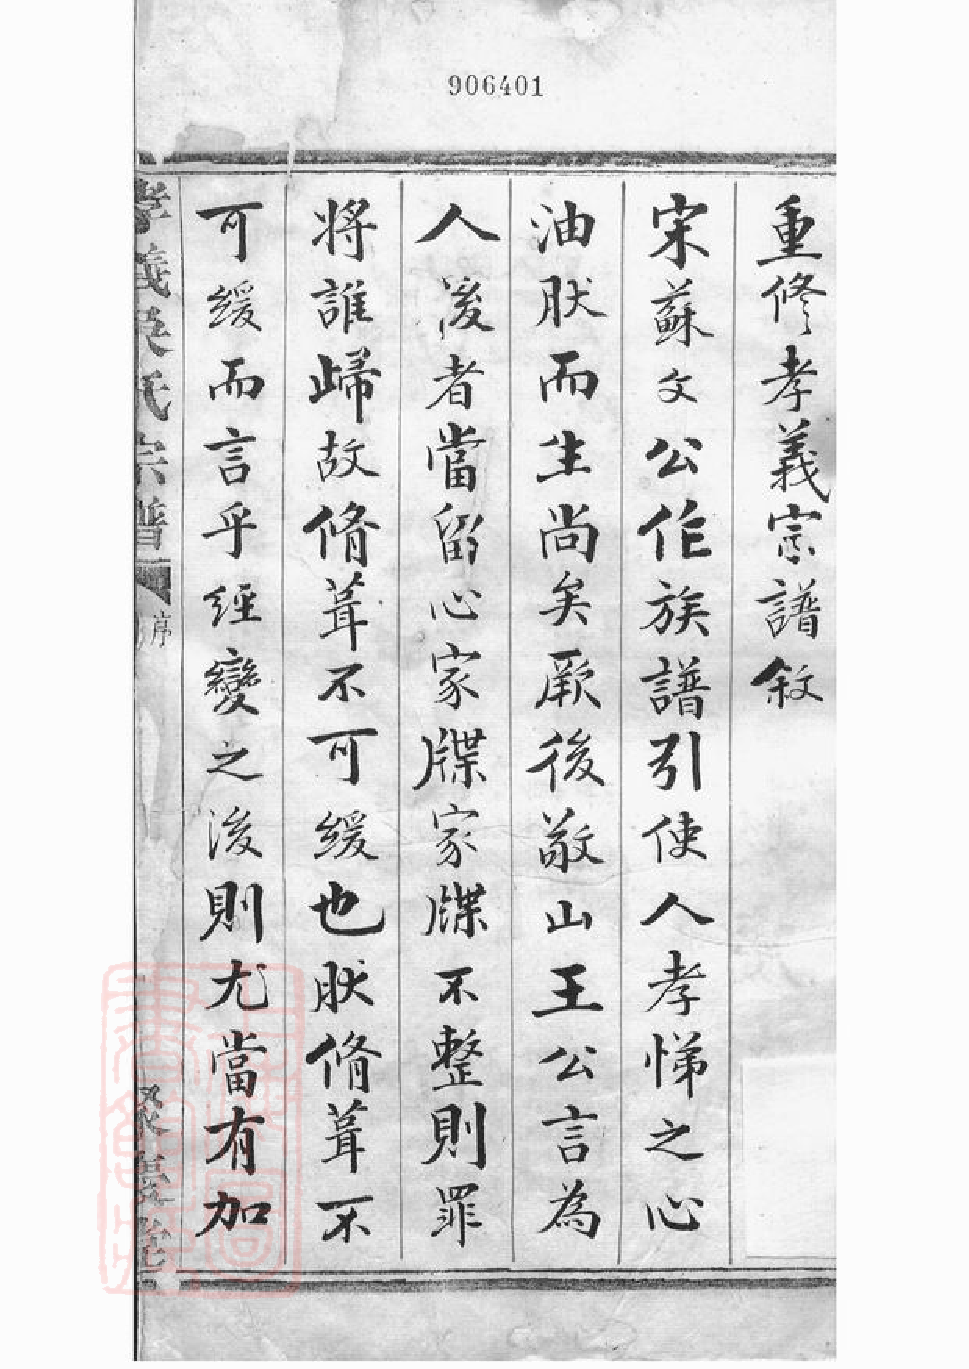 906401
重修孝義宗譜敘
宋蘇文公作族譜引使人孝悌之心
油肰而生尚矣厥後敬山王公言為
人後者當留心家牒家牒不整則罪
將誰歸故脩葺不可緩也肰脩葺不
可緩而言乎經變之後則尤當有加
孝義吳氏宗譜
序
聚慶堂